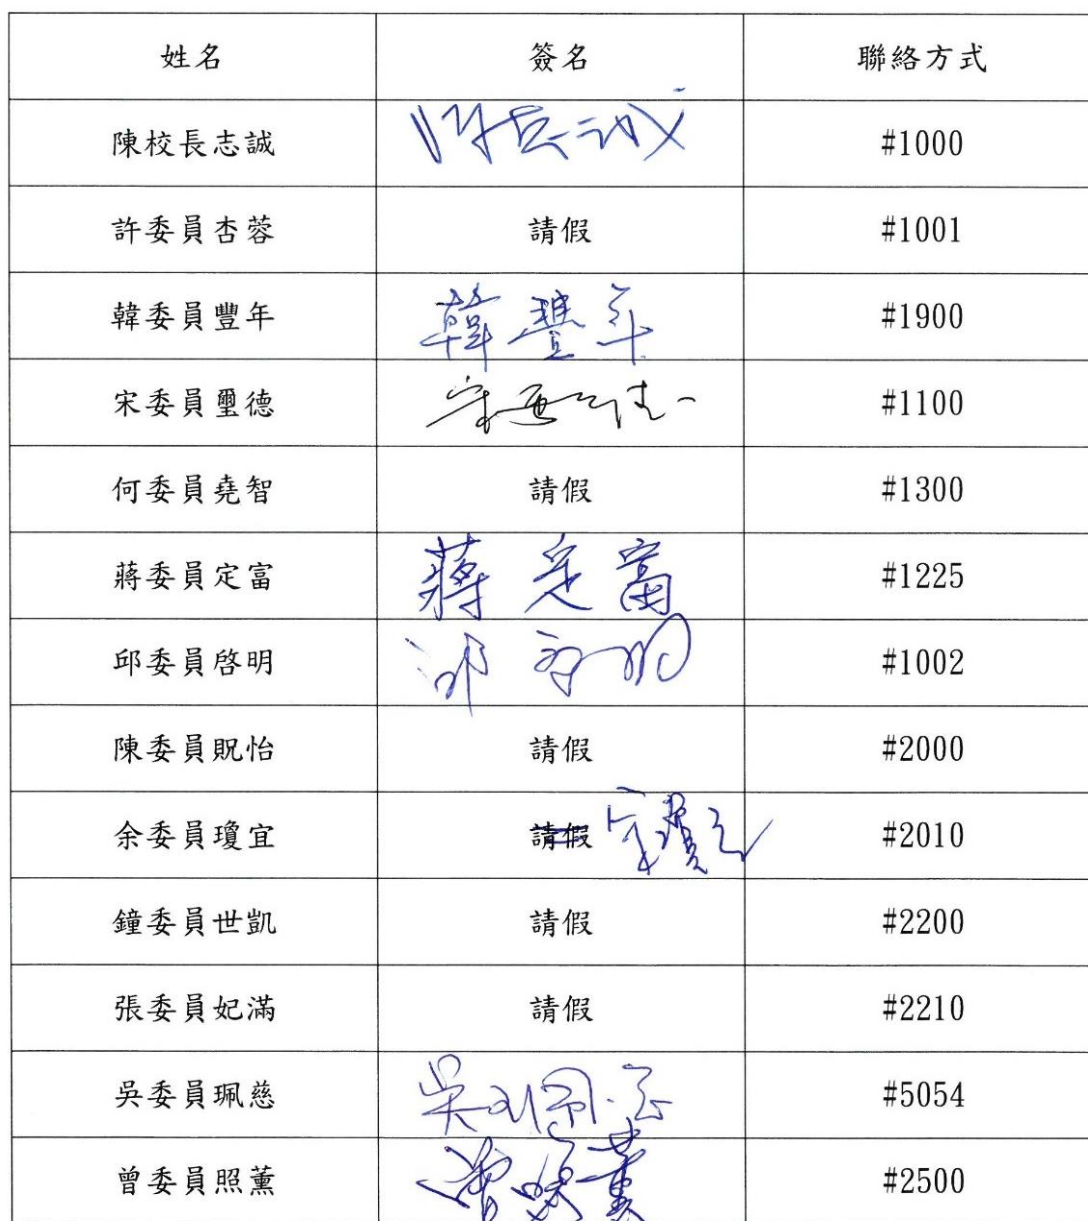 姓名 簽名 聯絡方式
陳校長志誠 陳志誠 #1000
許委員杏蓉 請假 #1001
韓委員豐年 韓豐年 #1900
宋委員璽德 宋璽德 #1100
何委員堯智 請假 #1300
蔣委員定富 蔣定富 #1225
邱委員啓明 邱啓明 #1002
陳委員貺怡 請假 #2000
余委員瓊宜 請假 #2010
鐘委員世凱 請假 #2200
張委員妃滿 請假 #2210
吳委員珮慈 吳珮慈 #5054
曾委員照薰 曾照薰 #2500